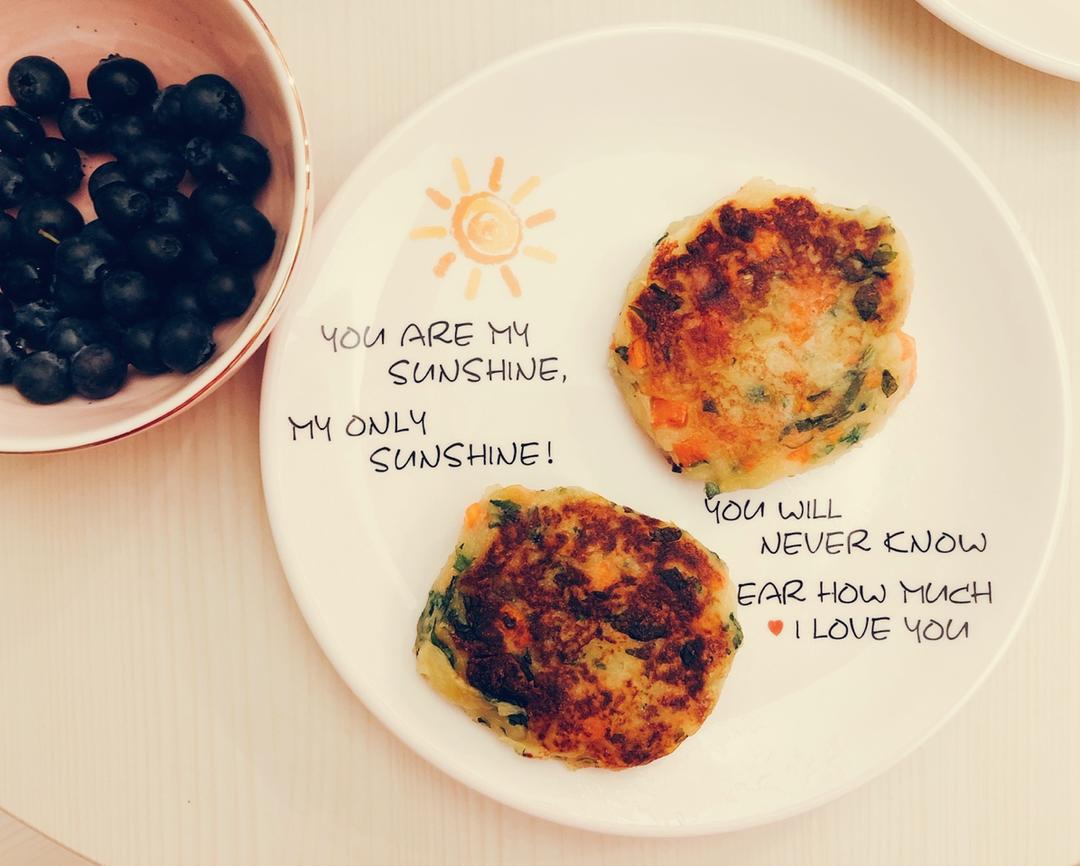 YOU ARE MY
SUNSHINE,
MY ONLY
SUNSHINE!
YOU WILL
NEVER KNOW
EAR HOW MUCH
I LOVE YOU